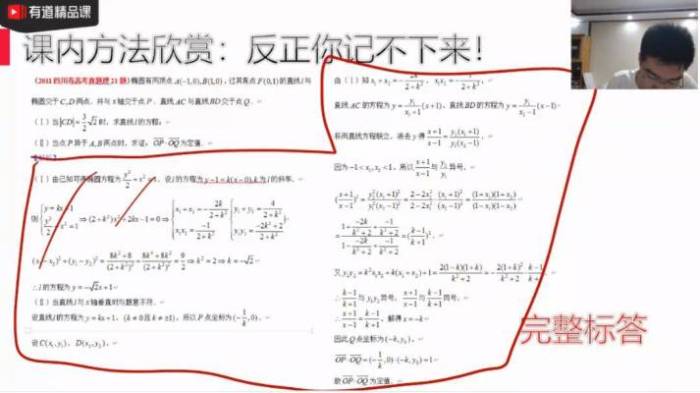 有道精品课
课内方法欣赏：反正你记不下来！
(2011四川有高考真题理21题) 椭圆有两顶点 A(-1,0), B(1,0), 过其焦点 F(0,1) 的直线 l 与
椭圆交于 C,D 两点, 并与 x 轴交于点 P. 直线 AC 与直线 BD 交于点 Q.
(Ⅰ) 当 |CD| = 3/2 √2 时, 求直线 l 的方程;
(Ⅱ) 当点 P 异于 A,B 两点时, 求证: OP·OQ 为定值.
(Ⅰ) 由已知可得椭圆方程为 y²/2 + x² = 1, 设 l 的方程为 y-1=k(x-0), k 为 l 的斜率.
则 { y=kx+1, y²/2+x²=1 ⇒ (2+k²)x²+2kx-1=0 ⇒ { x₁+x₂=-2k/(2+k²), x₁x₂=-1/(2+k²) { y₁+y₂=4/(2+k²), y₁y₂=(-2k²+2)/(2+k²)
(x₁-x₂)²+(y₁-y₂)²=(8k²+8)/(2+k²)²+(8k⁴+8k²)/(2+k²)²=9/2 ⇒ k²=2 ⇒ k=-√2
∴l 的方程为 y=-√2x+1
(Ⅱ) 当直线 l 与 x 轴垂直时与题意不符.
设直线 l 的方程为 y=kx+1, (k≠0 且 k≠±1), 所以 P 点坐标为 (-1/k,0).
设 C(x₁,y₁), D(x₂,y₂),
由 (Ⅰ) 知 x₁+x₂=-2k/(2+k²), x₁x₂=-1/(2+k²),
直线 AC 的方程为 y=y₁/(x₁+1)(x+1), 直线 BD 的方程为 y=y₂/(x₂-1)(x-1)
将两直线方程联立, 消去 y 得 (x+1)/(x-1)=y₂(x₁+1)/y₁(x₂-1).
因为 -1<x₁,x₂<1, 所以 (x+1)/(x-1) 与 y₂/y₁ 异号.
((x+1)/(x-1))²=y₂²(x₁+1)²/y₁²(x₂-1)²=(2-2x₂²)/(2-2x₁²)·(x₁+1)²/(x₂-1)²=(1+x₁)(1+x₂)/(1-x₁)(1-x₂)
=(1+-2k/(k²+2)+-1/(k²+2))/(1--2k/(k²+2)+-1/(k²+2))=((k-1)/(k+1))².
又 y₁y₂=k²x₁x₂+k(x₁+x₂)+1=2(1-k)(1+k)/(k²+2)=-2(1+k)²/(k²+2)·(k-1)/(k+1)
∴(k-1)/(k+1) 与 y₁y₂ 异号, (x+1)/(x-1) 与 (k-1)/(k+1) 同号,
∴(x+1)/(x-1)=(k-1)/(k+1), 解得 x=-k
因此 Q 点坐标为 (-k,y₀),
OP·OQ=(-1/k,0)·(-k,y₀)=1
故 OP·OQ 为定值.
完整标答